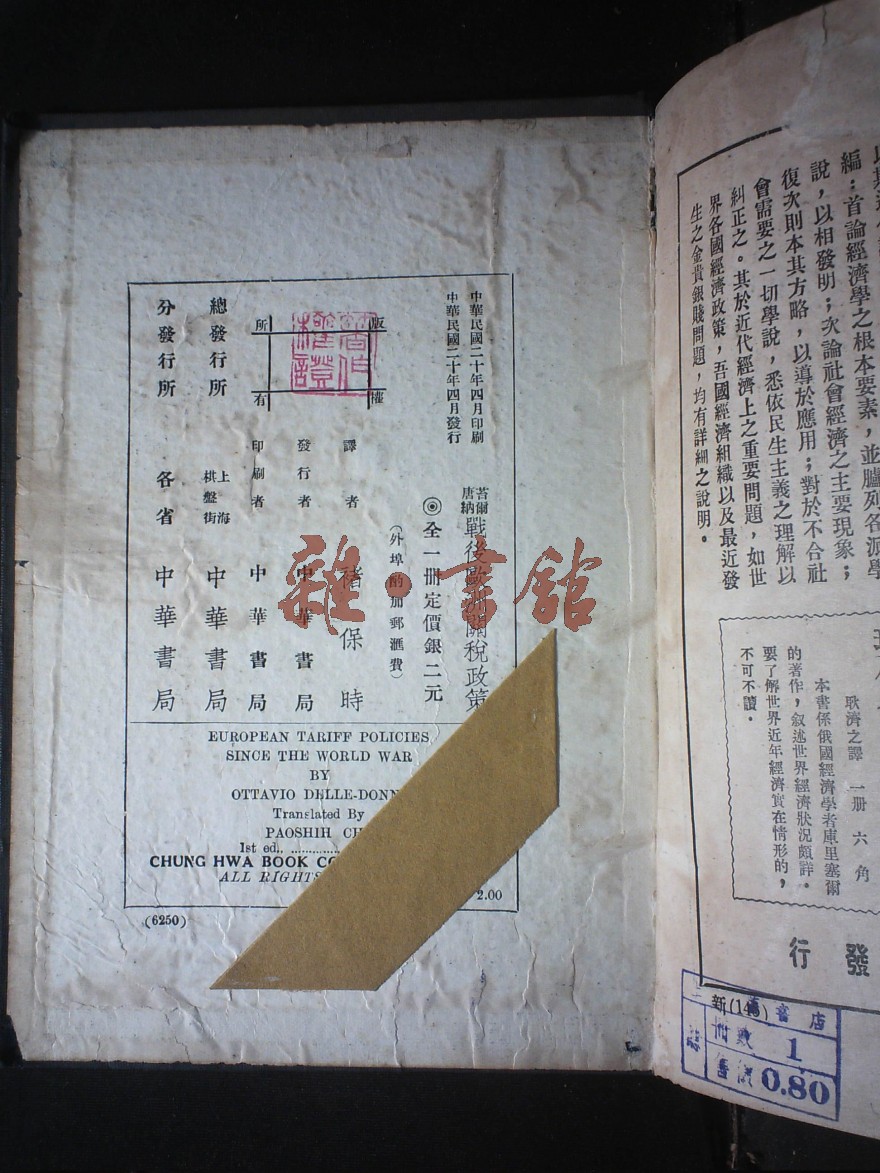 以其近
編：首論經濟學之根本要素，並臚列各派學
說，以相發明；次論社會經濟之主要現象；
復次則本其方略，以導於應用；對於不合社
會需要之一切學說，悉依民生主義之理解以
糾正之。其於近代經濟上之重要問題，如世
界各國經濟政策，吾國經濟組織以及最近發
生之金貴銀賤問題，均有詳細之說明。
耿濟之譯 一册 六角
本書係俄國經濟學者庫里塞爾
的著作，叙述世界經濟狀況頗詳。
要了解世界近年經濟實在情形的，
不可不讀。
發行
新(145)
書店
册數 1
0.80
中華民國二十年四月印刷
中華民國二十年四月發行
版權所有
苔爾唐納戰後歐洲關稅政策
◎全一册定價銀二元
(外埠酌加郵滙費)
譯者 褚保時
發行者 中華書局
印刷者 中華書局
總發行所 上海棋盤街 中華書局
分發行所 各省 中華書局
雜·書館
EUROPEAN TARIFF POLICIES
SINCE THE WORLD WAR
BY
OTTAVIO DELLE-DONN
Translated By
PAOSHIH CH
1st ed.,
CHUNG HWA BOOK CO
ALL RIGHTS
2.00
(6250)